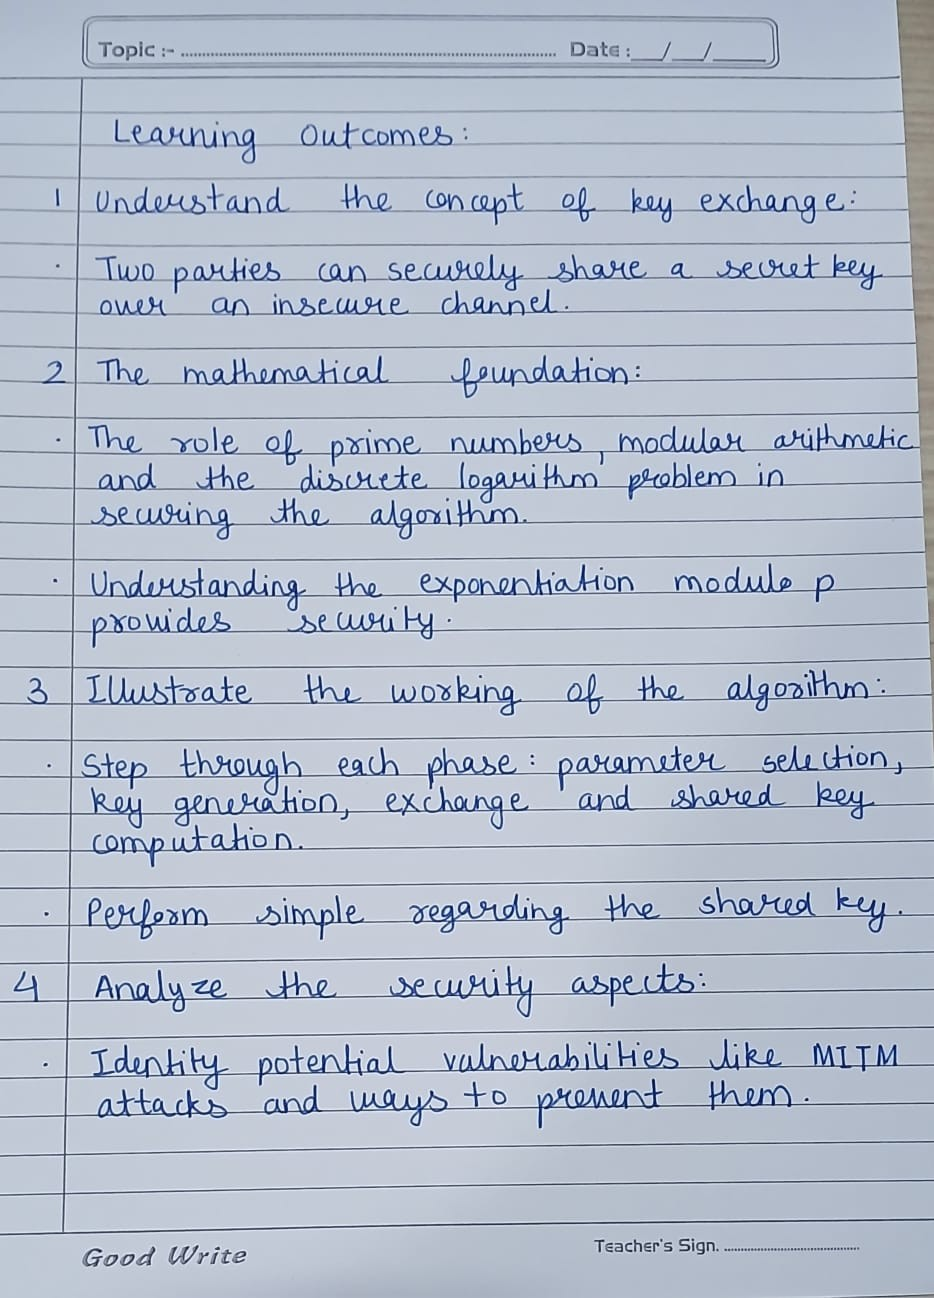 Topic :- Date : / /
Learning outcomes:
1 Understand the concept of key exchange:
· Two parties can securely share a secret key
over an insecure channel.
2 The mathematical foundation:
· The role of prime numbers, modular arithmetic
and the discrete logarithm problem in
securing the algorithm.
· Understanding the exponentiation modulo p
provides security.
3 Illustrate the working of the algorithm:
· Step through each phase: parameter selection,
key generation, exchange and shared key
computation.
· Perform simple regarding the shared key.
4 Analyze the security aspects:
· Identity potential vulnerabilities like MITM
attacks and ways to prevent them.
Good Write Teacher's Sign.